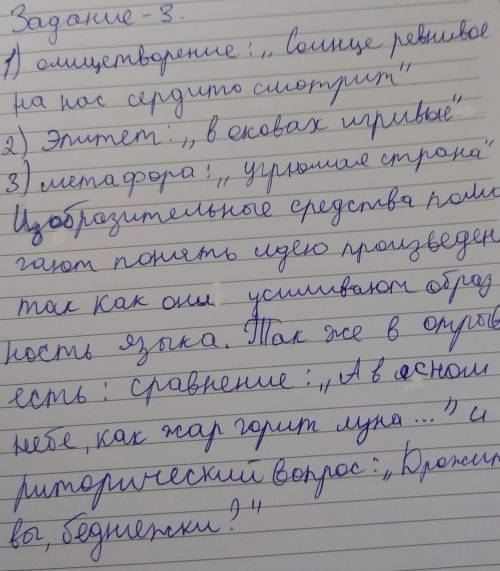 Задание - 3.
1) олицетворение: „Солнце ревнивое
на нас сердито смотрит"
2) Эпитет: „в оковах игривые"
3) метафора: „угрюмая страна"
Изобразительные средства помо
гают понять идею произведен
так как они усиливают образ
ность языка. Так же в отрыв
есть: сравнение: „А в ясном
небе, как жар горит луна..." и
риторический вопрос: „Дрожит
вы, бедняжки?"